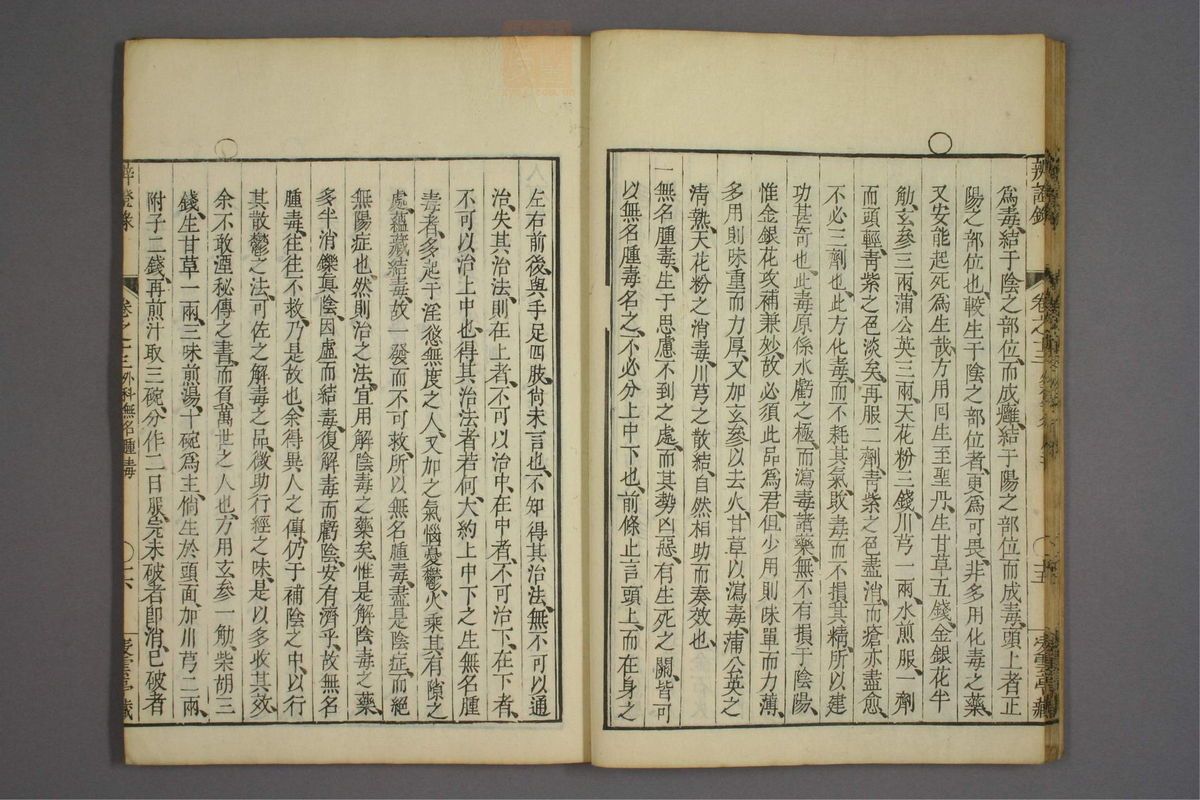 為毒、結于陰之部位、而成癰、結于陽之部位而成毒、頭上者正
陽之部位也、較生于陰之部位者、更為可畏、非多用化毒之藥、
又安能起死為生哉、方用回生至聖丹、生甘草五錢、金銀花半
觔、玄參三兩、蒲公英三兩、天花粉三錢、川芎一兩、水煎服、一劑
而頭輕、青紫之色淡矣、再服二劑、青紫之色盡消、而瘡亦盡愈、
不必三劑也、此方化毒而不耗其氣、敗毒而不損其精、所以建
功甚奇也、此毒原係水虧之極、而瀉毒諸藥、無不有損于陰陽、
惟金銀花攻補兼妙、故必須此品為君、但少用則味單而力薄、
多用則味重而力厚、又加玄參以去火、甘草以瀉毒、蒲公英之
清熱、天花粉之消毒、川芎之散結、自然相助而奏效也、
一無名腫毒、生于思慮不到之處、而其勢凶惡、有生死之關、皆可
以無名腫毒名之、不必分上中下也、前條止言頭上、而在身之
左右前後、與手足四肢、尚未言也、不知得其治法、無不可以通
治、失其治法、則在上者、不可以治中、在中者、不可治下、在下者、
不可以治上中也、得其治法者若何、大約上中下之生無名腫
毒者、多起于淫慾無度之人、又加之氣惱憂鬱、火乘其有隙之
處、蘊藏結毒、故一發而不可救、所以無名腫毒、盡是陰症、而絕
無陽症也、然則治之法、宜用解陰毒之藥矣、惟是解陰毒之藥、
多半消鑠真陰、因虛而結毒、復解毒而虧陰、安有濟乎、故無名
腫毒、往往不救、乃是故也、余得異人之傳、仍于補陰之中、以行
其散鬱之法、可佐之解毒之品、微助行經之味、是以多收其效、
余不敢湮秘傳之書、而有萬世之人也、方用玄參一觔、柴胡三
錢、生甘草一兩、三味煎湯、十碗為主、倘生於頭面、加川芎二兩、
附子二錢、再煎汁取三碗、分作二日服、完未破者即消、已破者
辨證錄
卷之十三 外科無名腫毒
二六